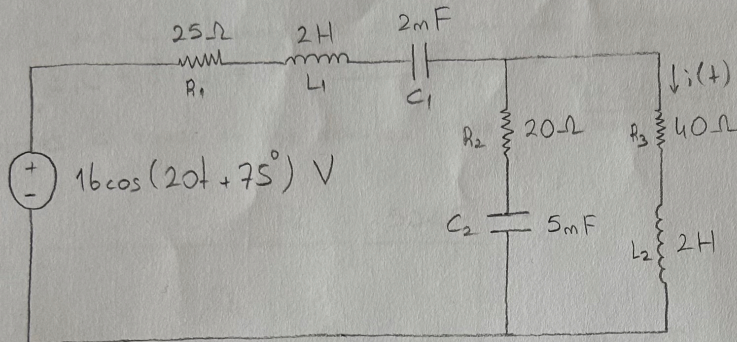 25Ω 2H 2mF
R₁ L₁ C₁
i(t)
R₂ 20Ω R₃ 40Ω
+
-
16cos(20t+75°) V
C₂ 5mF L₂ 2H